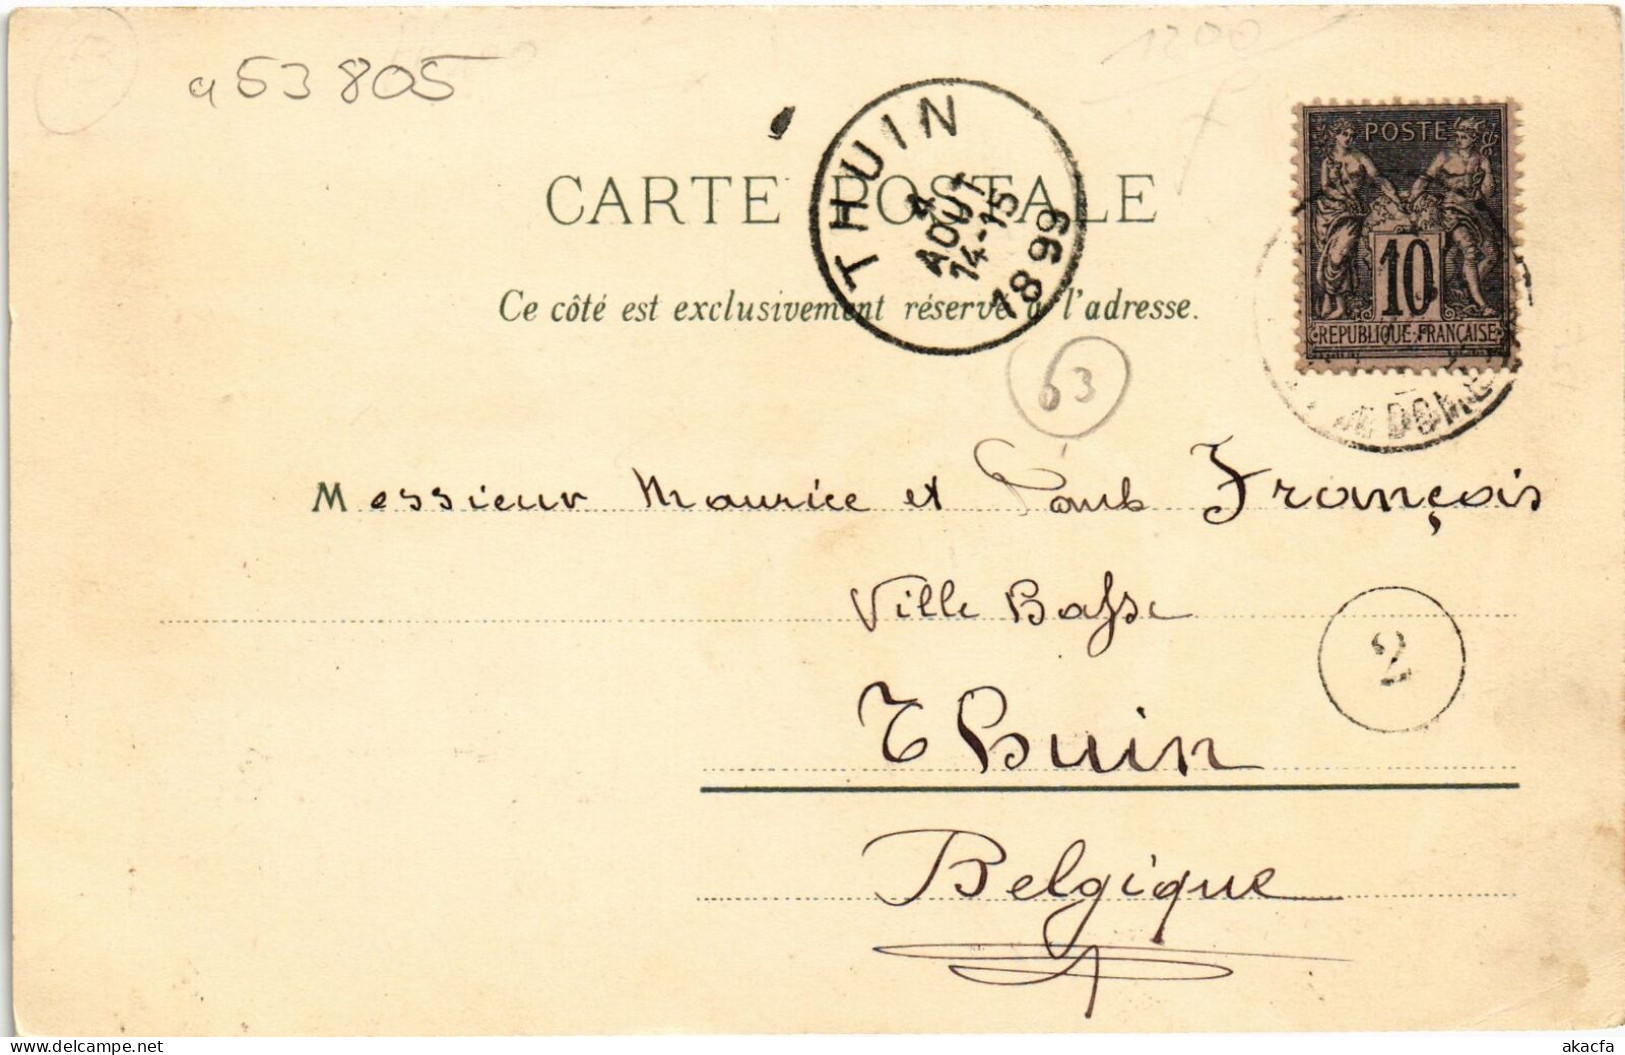 a53805
1200
THUIN
4
AOUT
14-15
1899
POSTE
10
REPUBLIQUE FRANÇAISE
DE DOME
CARTE POSTALE
Ce côté est exclusivement réservé à l'adresse.
63
Messieur Maurice et Paul François
Ville Basse
2
Thuin
Belgique
akacfa